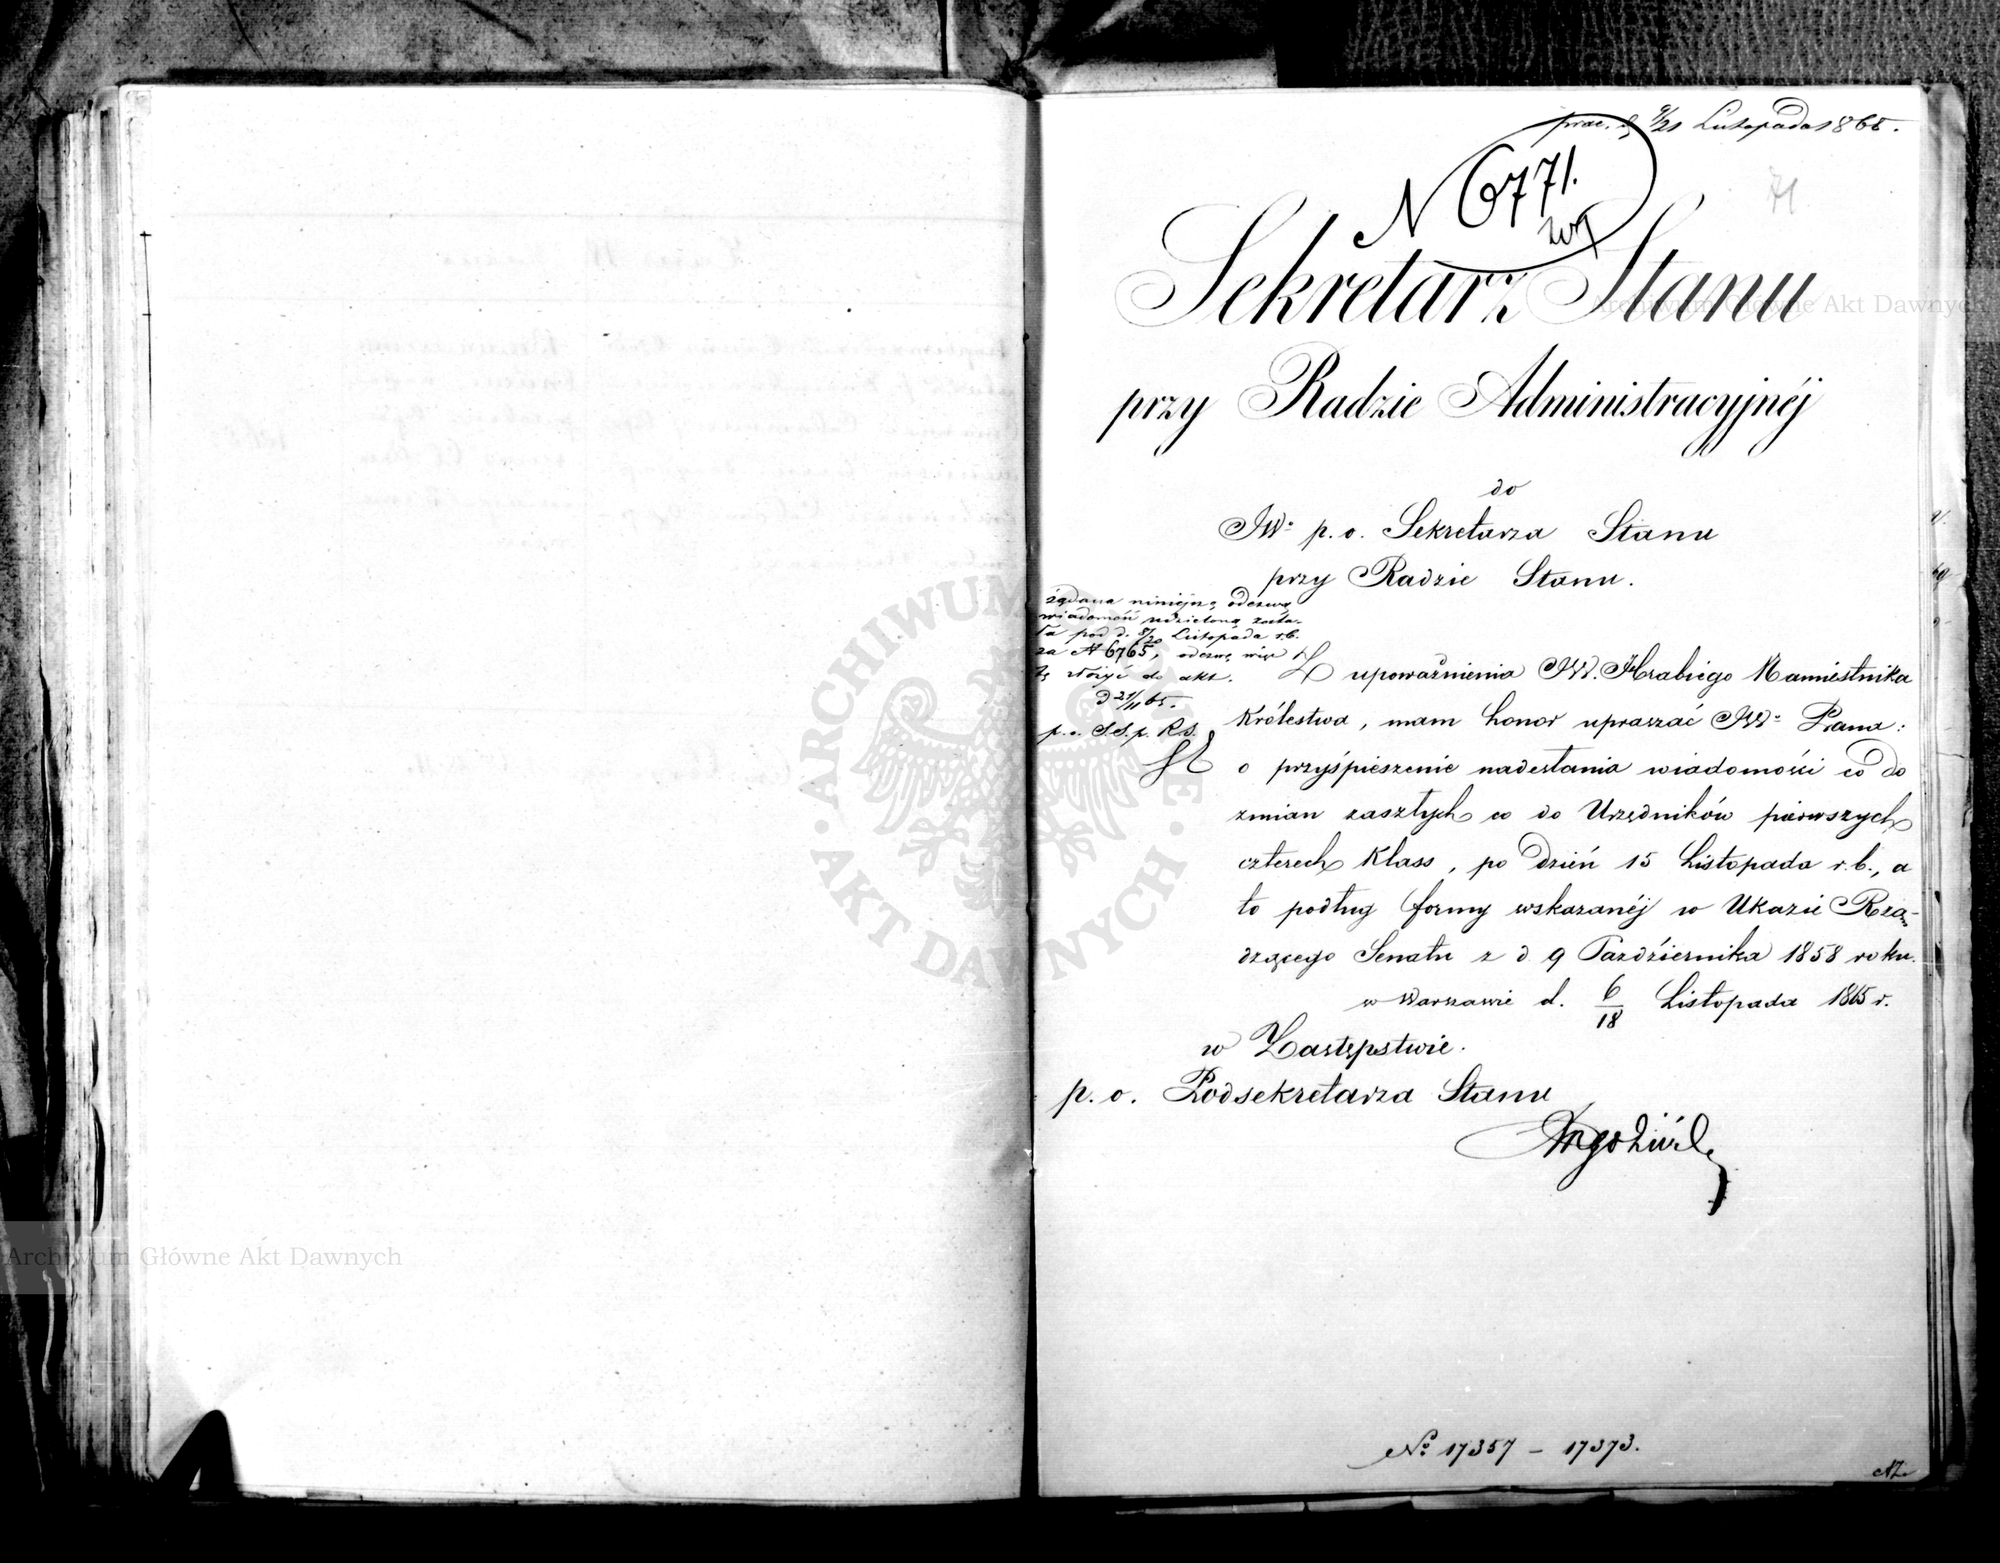 prae. d 9/21 Listopada 1865.
N 6771.
71
Sekretarz Stanu
przy Radzie Administracyjnéj
do
JW° p. o. Sekretarza Stanu
przy Radzie Stanu.
żądana niniejszą odezwą
wiadomość udzieloną zosta-
ła pod d. 8/20 Listopada r.b.
za N 6765, odezwę więc
tę złożyć do akt.
d 21/11 65.
p. o. S.S. p. R.S.
Z upoważnienia JW. Hrabiego Namiestnika
Królestwa, mam honor upraszać JW° Pana:
o przyśpieszenie nadesłania wiadomości co do
zmian zaszłych co do Urzędników pierwszych
czterech Klass, po dzień 15 Listopada r.b., a
to podług formy wskazanéj w Ukazie Rzą-
dzącego Senatu z d 9 Października 1858 roku.
w Warszawie d. 6/18 Listopada 1865 r.
w Zastępstwie.
p. o. Podsekretarza Stanu
N° 17357 – 17373.
Archiwum Główne Akt Dawnych
Archiwum Główne Akt Dawnych
ARCHIWUM GŁÓWNE · AKT DAWNYCH ·